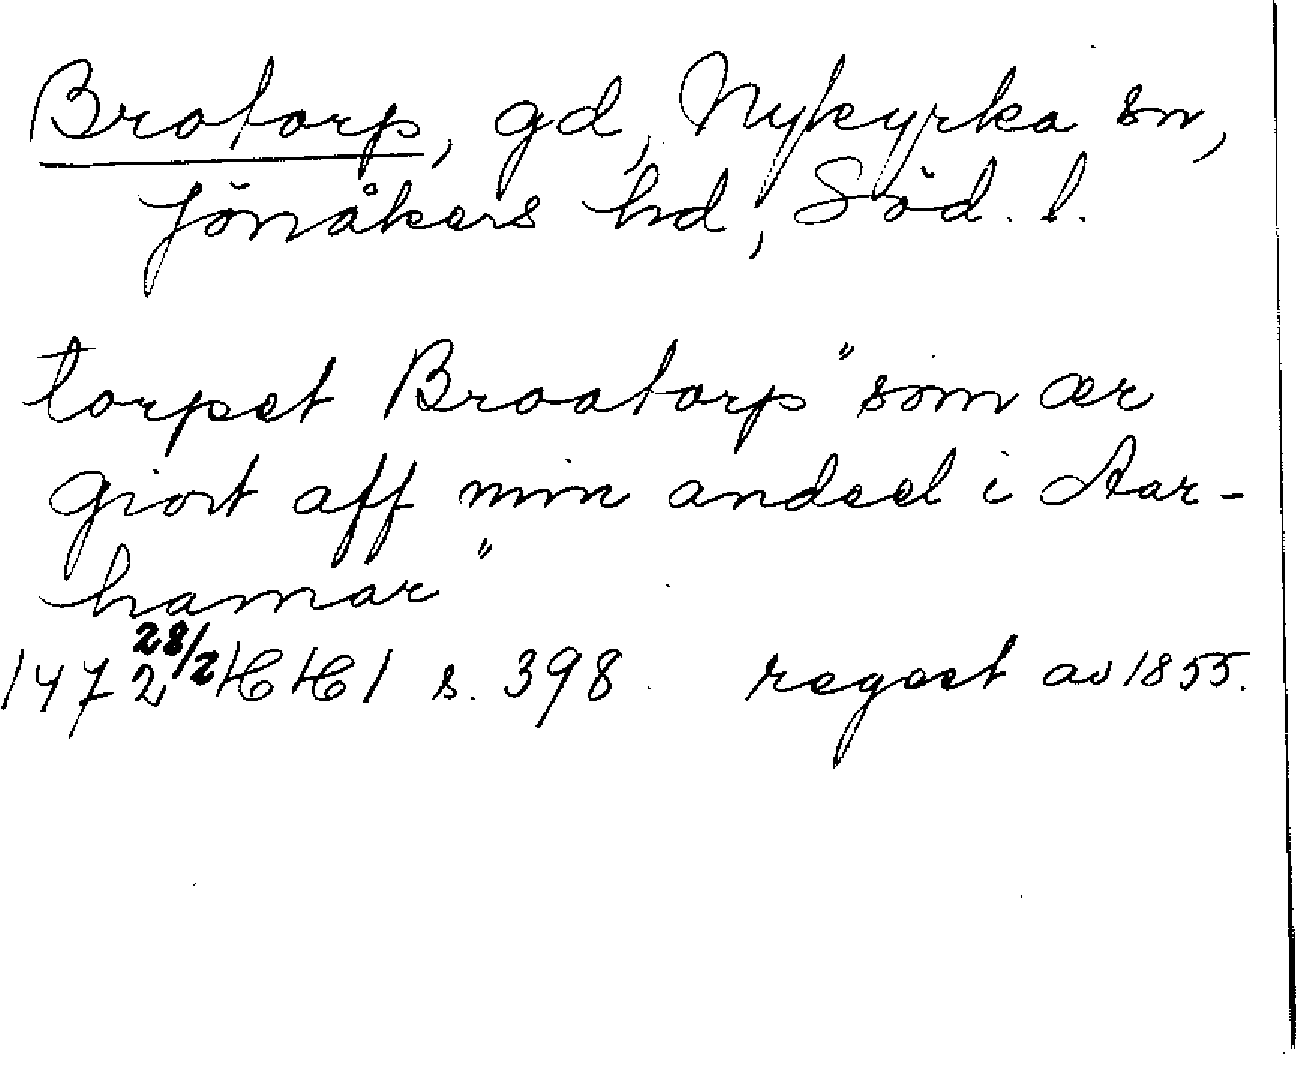 Brotorp, gd, Nykyrka sn,
Jönåkers hd, Söd. l.
torpet Broatorp "som ær
giort aff min andeel i Aar-
hamar"
1472 28/2 HH 1 s. 398. regest av 1855.